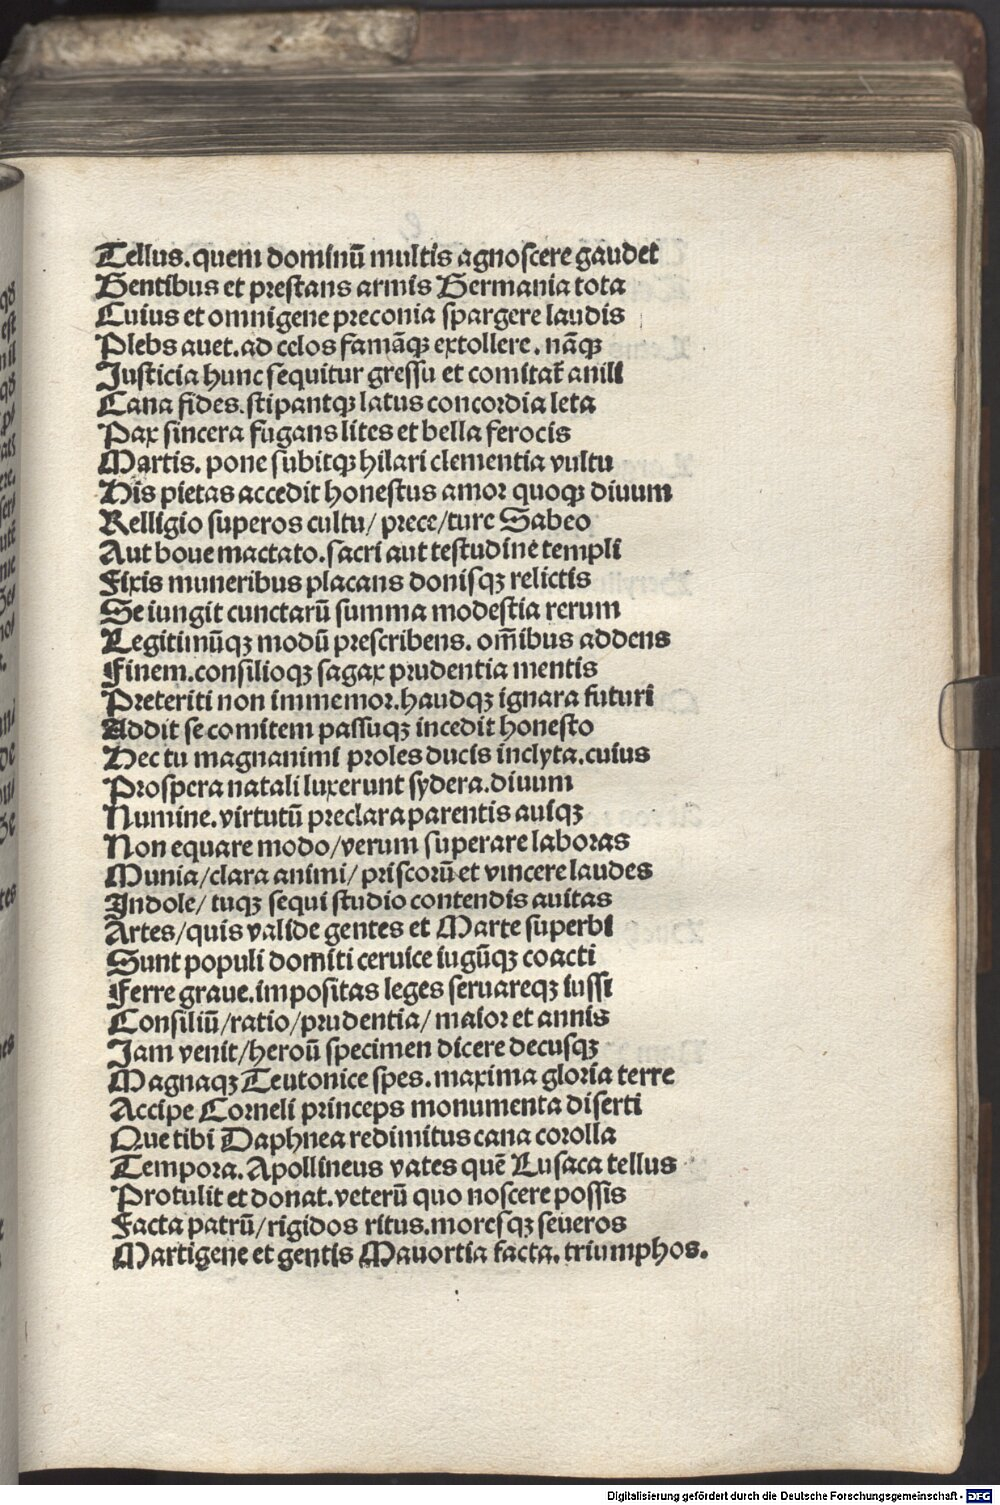 Tellus. quem dominū multis agnoscere gaudet
Gentibus et prestans armis Germania tota
Cuius et omnigene preconia spargere laudis
Plebs auet. ad celos famāqꝫ extollere. nāqꝫ
Justicia hunc sequitur gressu et comitat᷑ anili
Cana fides. stipantqꝫ latus concordia leta
Pax sincera fugans lites et bella ferocis
Martis. pone subitqꝫ hilari clementia vultu
His pietas accedit honestus amor quoqꝫ diuum
Relligio superos cultu/ prece/ ture Sabeo
Aut boue mactato. sacri aut testudine templi
Fixis muneribus placans donisqꝫ relictis
Se iungit cunctarū summa modestia rerum
Legitimūqꝫ modū prescribens. om̄ibus addens
Finem. consilioqꝫ sagax prudentia mentis
Preteriti non immemor. haudqꝫ ignara futuri
Addit se comitem passuqꝫ incedit honesto
Hec tu magnanimi proles ducis inclyta. cuius
Prospera natali luxerunt sydera. diuum
Numine. virtutū preclara parentis auiqꝫ
Non equare modo/ verum superare laboras
Munia/ clara animi/ priscorū et vincere laudes
Indole/ tuqꝫ sequi studio contendis auitas
Artes/ quis valide gentes et Marte superbi
Sunt populi domiti ceruice iugūqꝫ coacti
Ferre graue. impositas leges seruareqꝫ iussi
Consiliū/ ratio/ prudentia/ maior et annis
Jam venit/ heroū specimen dicere decusqꝫ
Magnaqꝫ Teutonice spes. maxima gloria terre
Accipe Corneli princeps monumenta diserti
Que tibi Daphnea redimitus cana corolla
Tempora. Apollineus vates quē Lusaca tellus
Protulit et donat. veterū quo noscere possis
Facta patrū/ rigidos ritus. moresqꝫ seueros
Martigene et gentis Mauortia facta. triumphos.
Digitalisierung gefördert durch die Deutsche Forschungsgemeinschaft - DFG